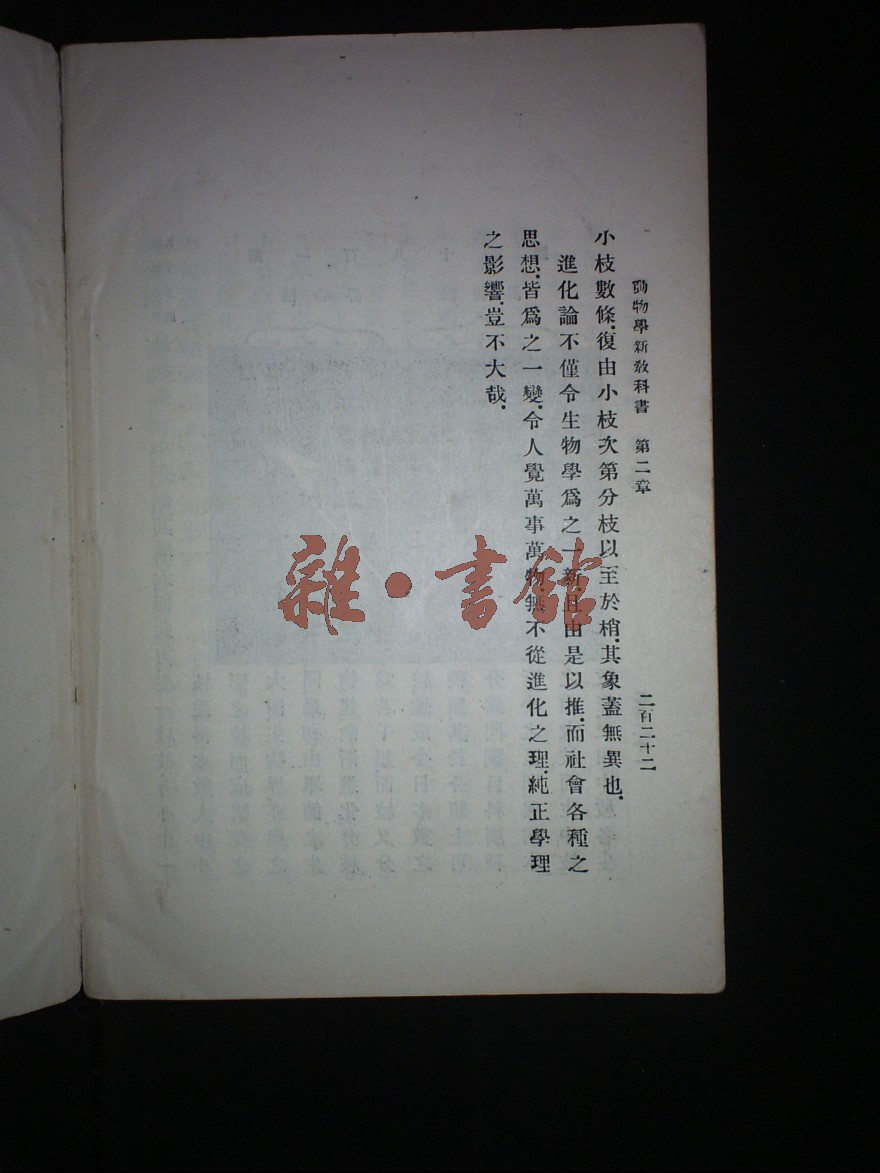 動物學新教科書 第二章 二百二十二
小枝數條.復由小枝次第分枝以至於梢.其象蓋無異也.
進化論不僅令生物學爲之一新.且由是以推.而社會各種之
思想.皆爲之一變.令人覺萬事萬物.無不從進化之理.純正學理
之影響.豈不大哉.
雜·書館